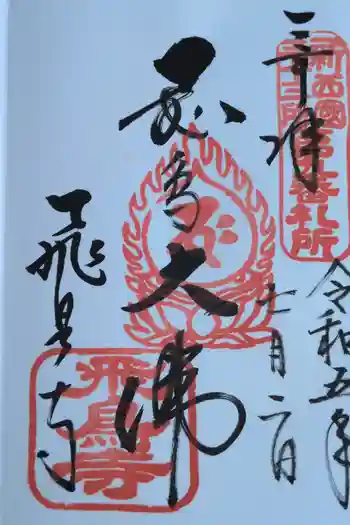 奉拝
新西國第九番札所
令和五年
七月二日
飛鳥大佛
飛鳥寺
飛鳥寺